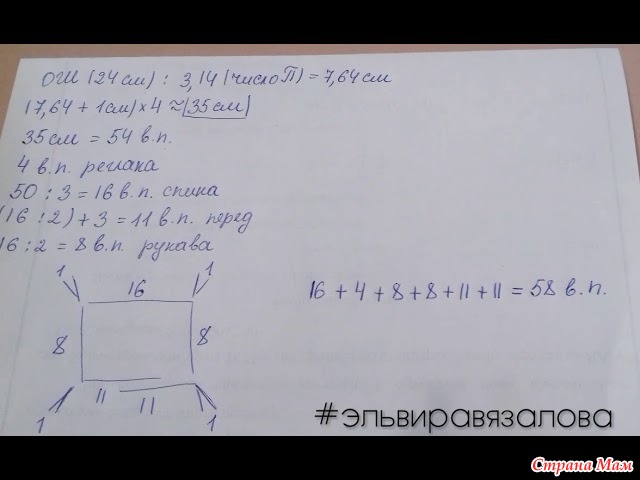 ОШ (24 см) : 3,14 (число П) = 7,64 см
(7,64 + 1 см) × 4 ≈ (35 см)
35 см = 54 в.п.
4 в.п. реглана
50 : 3 = 16 в.п. спинка
(16 : 2) + 3 = 11 в.п. перед
16 : 2 = 8 в.п. рукава
1 1
16
8 8
11 11
1 1
16 + 4 + 8 + 8 + 11 + 11 = 58 в.п.
#эльвиравязалова
Страна Мам